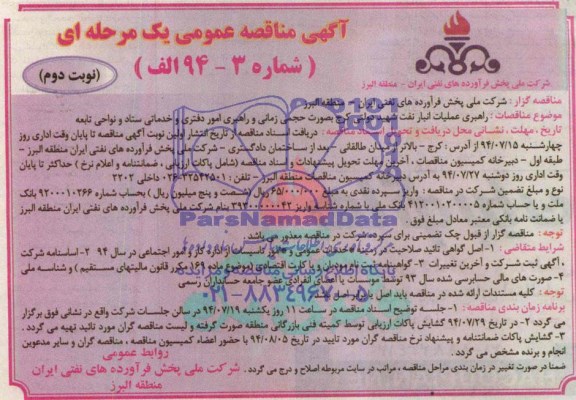 آگهی مناقصه عمومی یک مرحله ای
( شماره ۳ - ۹۴ الف )
(نوبت دوم)
شرکت ملی پخش فرآورده های نفتی ایران - منطقه البرز
مناقصه گزار : شرکت ملی پخش فرآورده های نفتی ایران - منطقه البرز
موضوع مناقصات : راهبری عملیات انبار نفت شهید دولتی کرج بصورت حجمی زمانی و راهبری امور دفتری و خدماتی ستاد و نواحی تابعه
تاریخ ، مهلت ، نشانی محل دریافت و تحویل اسناد مناقصه : دریافت اسناد مناقصه از تاریخ انتشار اولین نوبت آگهی مناقصه تا پایان وقت اداری روز
چهارشنبه ۹۴/۰۷/۱۵ از آدرس : کرج - بالاتر از میدان طالقانی - بعد از ساختمان دادگستری - شرکت ملی پخش فرآورده های نفتی ایران منطقه البرز -
طبقه اول - دبیرخانه کمیسیون مناقصات ، آخرین مهلت تحویل پیشنهادات و اسناد مناقصه (شامل پاکات ارزیابی ، ضمانتنامه و اعلام نرخ ) حداکثر تا پایان
وقت اداری روز دوشنبه ۹۴/۰۷/۲۷ در دبیرخانه کمیسیون مناقصات منطقه البرز - تلفن : ۳۲۵۴۲۵۰۱-۰۲۶ داخلی ۲۲۰۲
نوع و مبلغ تضمین شرکت در مناقصه : واریز سپرده نقدی به مبلغ ۶۵/۰۰۰/۰۰۰ ریال (شصت و پنج میلیون ریال ) بحساب شماره ۹۲۰۰۰۱۰۲۶۶ بانک
ملت و یا حساب شماره ۴۱۲۰۰۱۰۲۰۰۰۵ بانک ملی با شماره شناسه واریز ۳۹۳۰۰۰۰۰۰۴۲ بنام شرکت ملی پخش فرآورده های نفتی ایران منطقه البرز
یا ضمانت نامه بانکی معتبر معادل مبلغ فوق .
توجه : مناقصه گزار از قبول چک تضمینی برای سپرده شرکت در مناقصه معذور می باشد .
شرایط متقاضی : ۱- اصل گواهی تائید صلاحیت در رشته خدمات عمومی و مجوز تاسیسات از اداره کار و امور اجتماعی در سال ۹۴ ۲- اساسنامه شرکت
، آگهی ثبت شرکت و آخرین تغییرات ۳- گواهینامه ثبت نام و کارت اقتصادی (موضوع ماده ۱۶۹ مکرر قانون مالیتهای مستقیم ) و شناسه ملی
۴- صورت های مالی حسابرسی شده سال ۹۳ توسط موسسات یا اعضای انفرادی عضو جامعه حسابداران رسمی
توجه : کلیه مستندات ارائه شده در مناقصه باید اصل یا برابر اصل باشد
برنامه زمان بندی مناقصه : ۱- جلسه توضیح اسناد مناقصه در ساعت ۱۱ روز یکشنبه ۹۴/۰۷/۱۹ در سالن جلسات شرکت واقع در نشانی فوق برگزار
می گردد ۲- در تاریخ ۹۴/۰۷/۲۹ گشایش پاکات ارزیابی توسط کمیته فنی بازرگانی منطقه صورت گرفته و لیست مناقصه گران مورد تائید تهیه می گردد .
۳- گشایش پاکات ضمانتنامه و پیشنهاد نرخ مناقصه گران مورد تایید در تاریخ ۹۴/۰۸/۰۵ با حضور اعضاء کمیسیون مناقصه ، مناقصه گران و سایر مدعوین
انجام و برنده مشخص می گردد .
ضمنا در صورت تغییر در زمان بندی مراحل مناقصه ، مراتب در سایت مربوطه اصلاح و درج می گردد .
روابط عمومی
شرکت ملی پخش فرآورده های نفتی ایران
منطقه البرز
ParsNamadData
۰۲۱-۸۸۳۴۹۶۷۰-۵